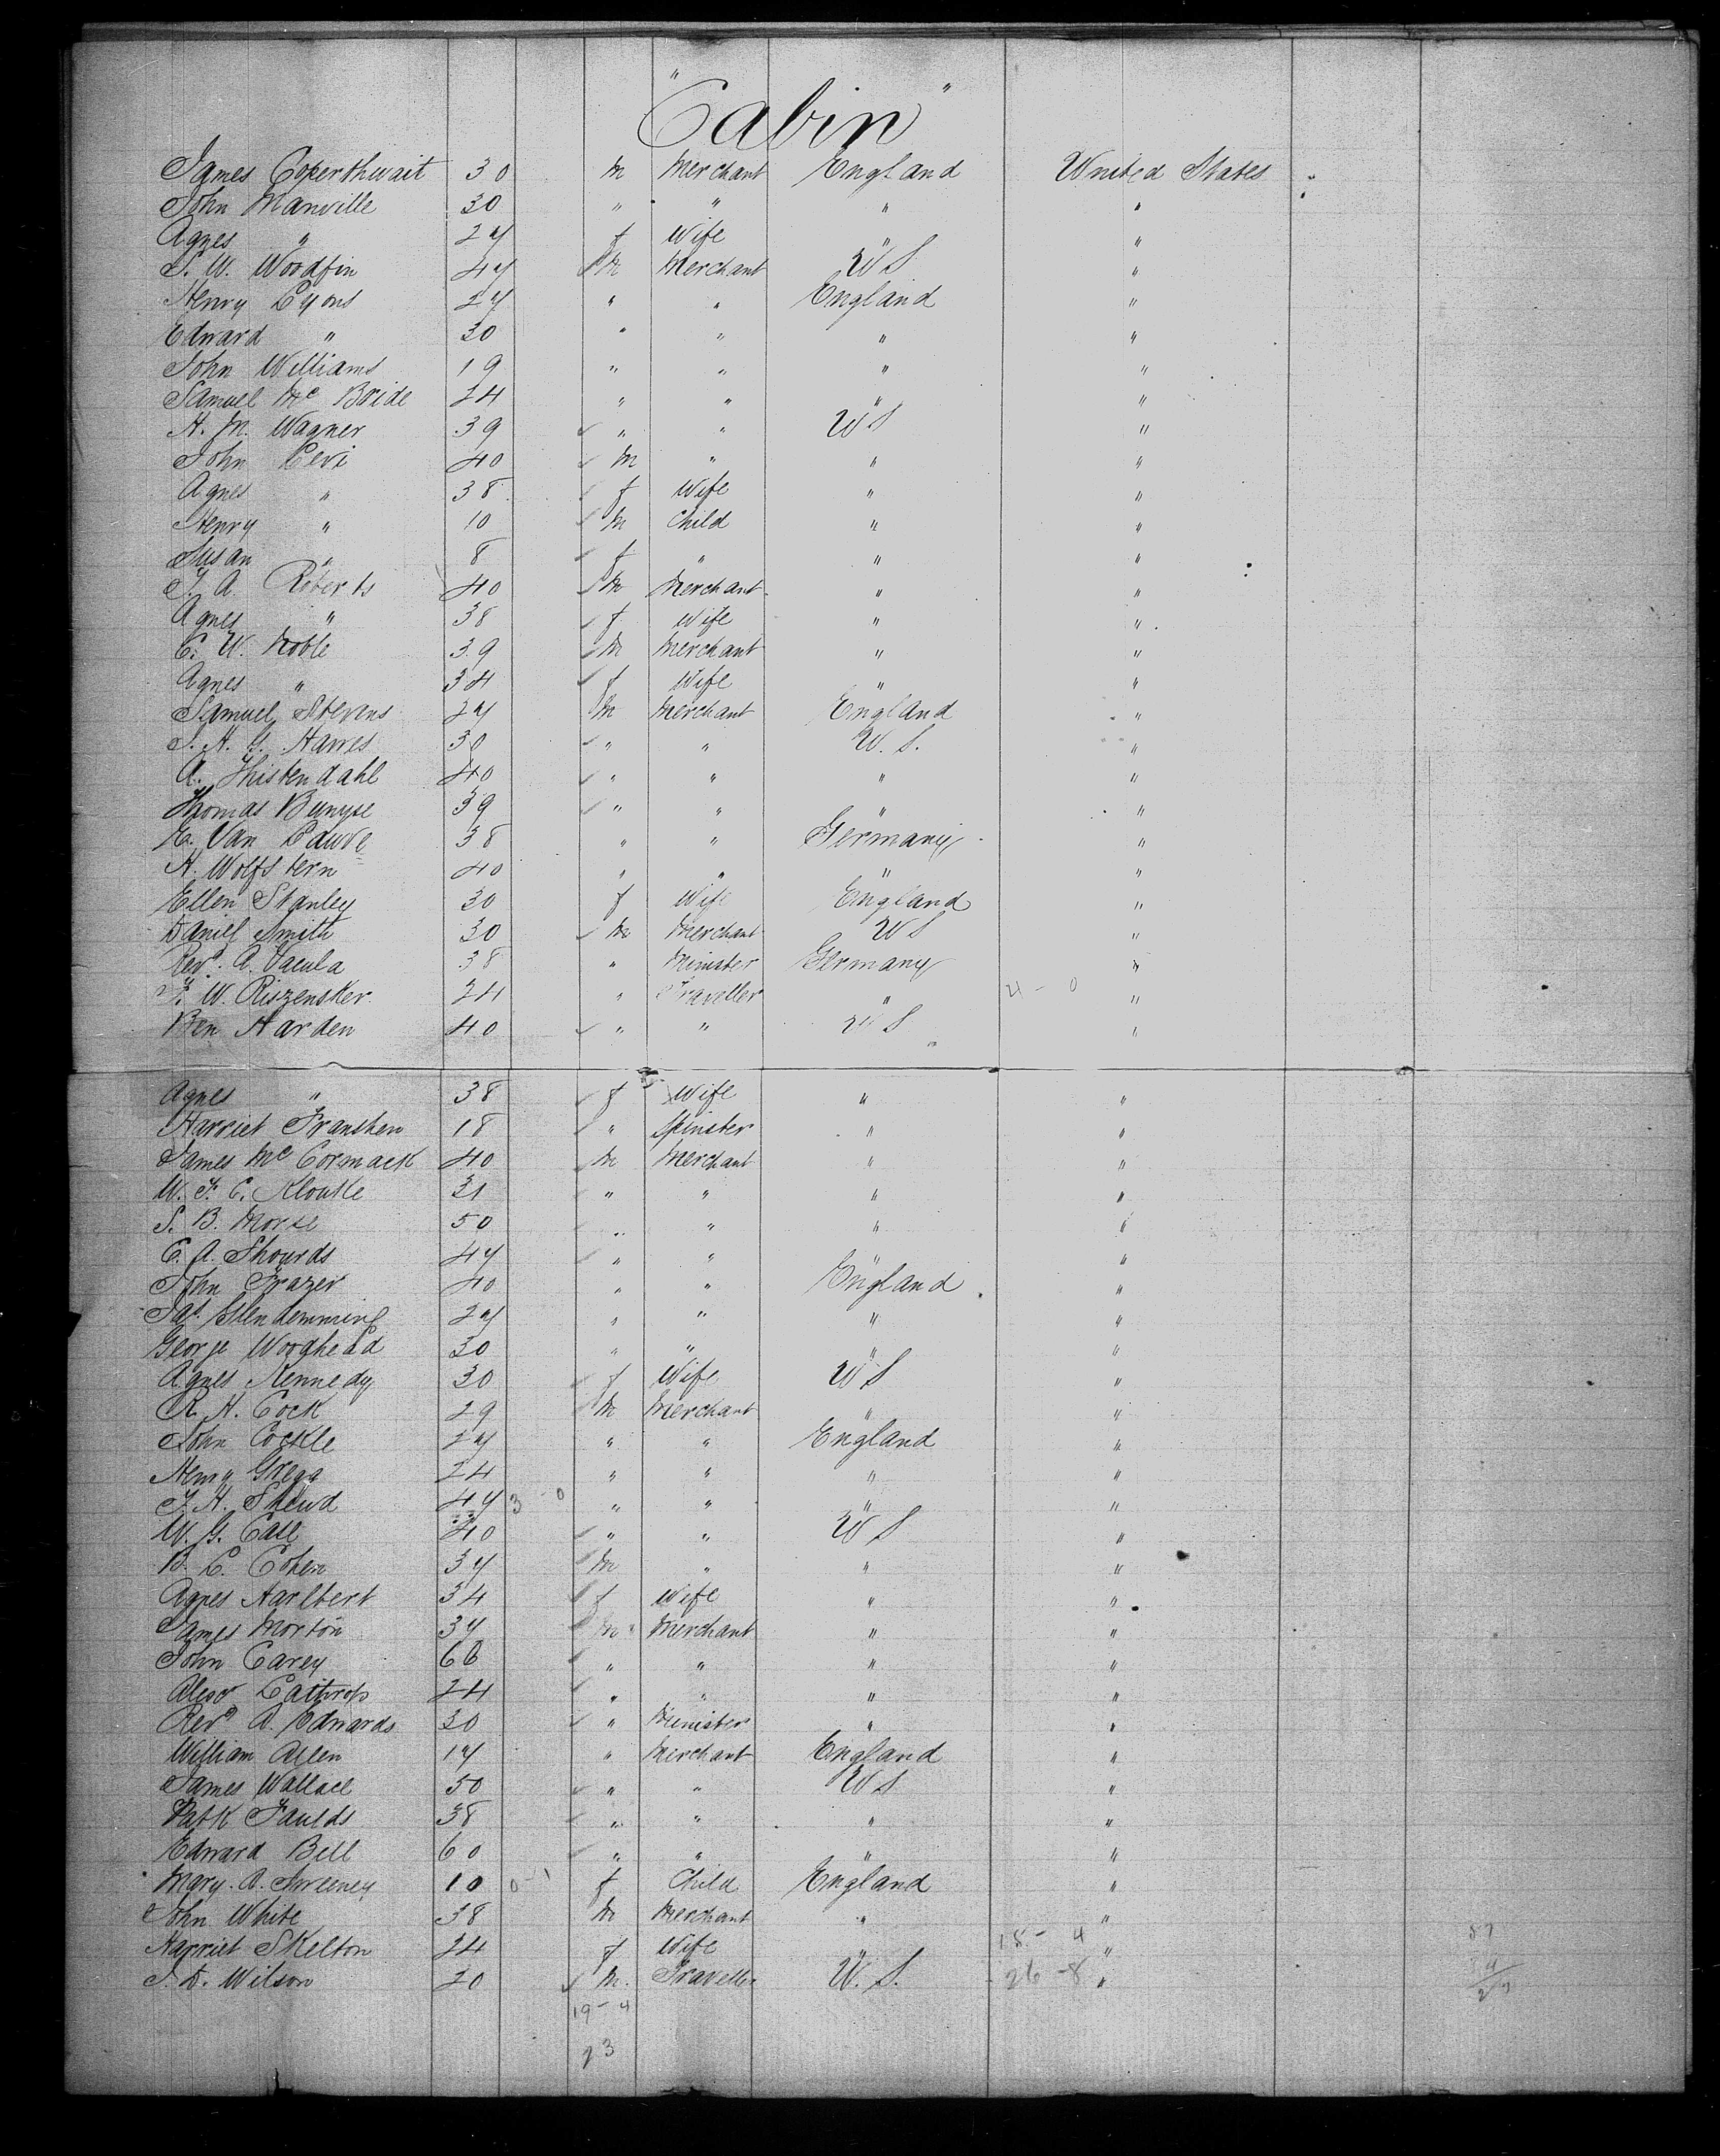 " Cabin "
James Coperthwait 30 m Merchant England United States
John Manville 30 " " " "
Agnes " 27 f Wife " "
S. W. Woodfin 47 m Merchant U S "
Henry Lyons 27 " " England "
Edward " 30 " " " "
John Williams 19 " " " "
Samuel Mc Bride 24 " " " "
H. M. Wagner 39 " " U S "
John Levi 40 m " " "
Agnes " 38 f Wife " "
Henry " 10 m Child " "
Susan " 8 f " " "
J. A. Roberts 40 m Merchant " "
Agnes " 38 f Wife " "
C. W. Noble 39 m Merchant " "
Agnes " 34 f Wife " "
Samuel Stevens 27 m Merchant England "
S. H. G. Hawes 30 " " U. S. "
A. Thistendahl 40 " " " "
Thomas Bunyse 39 " " " "
E. Van Lauwe 38 " " Germany "
H. Wolfstern 40 " " " "
Ellen Stanley 30 f Wife England "
Daniel Smith 30 m Merchant U S "
Revd. A. Vacula 38 " Minister Germany "
F. W. Riszensker 24 " Traveller " 4 - 0 "
Ben Harden 40 " " U S "
Agnes " 38 f Wife " "
Harriet Franshen 18 " Spinster " "
James Mc Cormack 40 m Merchant " "
W. F. C. Kloutte 31 " " " "
S. B. Morse 50 " " " "
C. A. Shourds 47 " " " "
John Frazer 40 " " England "
Jas. Glendemming 27 " " " "
George Woodhead 30 " " " "
Agnes Kennedy 30 f Wife U S "
R. H. Cock 29 m Merchant " "
John Cockle 27 " " England "
Henry Gregg 24 " " " "
J. H. 47 3 - 0 " " " "
W. G. Case 40 " " U S "
B. L. Cohen 37 m " " "
Agnes Harlbert 34 f Wife " "
James Morton 37 m Merchant " "
John Carey 66 " " " "
Alexr Lathrop 24 " " " "
Revd A. Edwards 30 " Minister " "
William Allen 17 " Merchant England "
James Wallace 50 " " U S "
Patk Faulds 38 " " " "
Edward Bell 60 " " " "
Mary. A. Sweeney 10 0 - 1 f Child England "
John White 38 m Merchant " "
Harriet Skelton 24 f Wife " 18 - 4 "
J. D. Wilson 20 m. Traveller U. S. 26 - 8 "
19 - 4
23